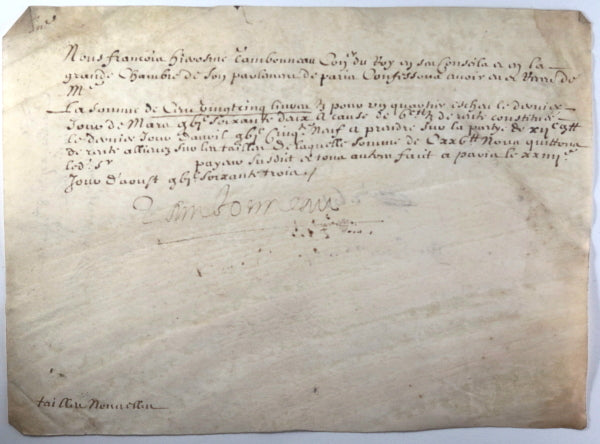 Nous francois hierosme Tambonneau Con.er du Roy en ses Conseils et en la
grande Chambre de son parlement de paris Confessons avoir eu et Receu de
M.e
La somme de Cent vingt cinq livres pour un quartier escheu le dernier
Jour de Mars soixante deux A cause de de rente constituée
le dernier Jour d'avril Cinq.te Neuf a prendre sur la partie de
de rente assignez sur les tailles De laquelle somme de Nous quittons
led. S.r payeur susdit et tous autres fait a paris le xxiiij.e
Jour d'aoust soixante trois /.
Tambonneau
tailles Nouvelles